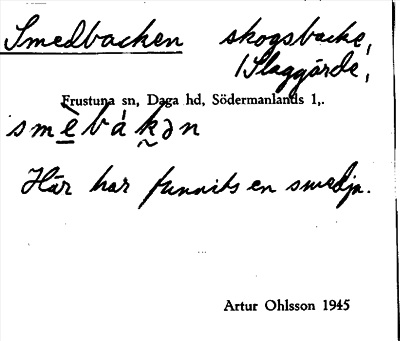 Smedbacken skogsbacke,
/Slaggärde,
Frustuna sn, Daga hd, Södermanlands l,.
smè̲bák̬ən
Här har funnits en smedja.
Artur Ohlsson 1945